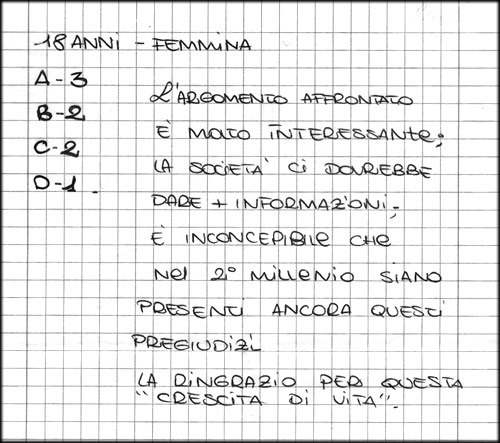 18 ANNI - FEMMINA
A - 3
B - 2
C - 2
D - 1
L'ARGOMENTO AFFRONTATO
È MOLTO INTERESSANTE;
LA SOCIETA' CI DOVREBBE
DARE + INFORMAZIONI;
È INCONCEPIBILE CHE
NEL 2° MILLENIO SIANO
PRESENTI ANCORA QUESTI
PREGIUDIZI
LA RINGRAZIO PER QUESTA
"CRESCITA DI VITA".